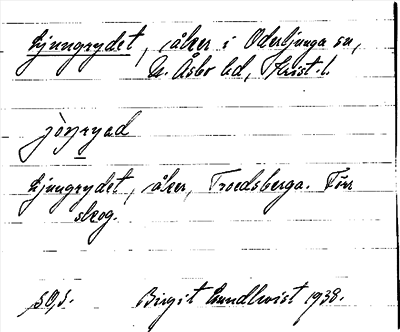 Ljungrydet, åker i Oderljunga sn,
N. Åsbo hd, Krist. l.
jòŋryad
Ljungrydet, åker, Troedsberga. Förr
skog.
s. 9, 5.
Birgit Lundkvist 1938.